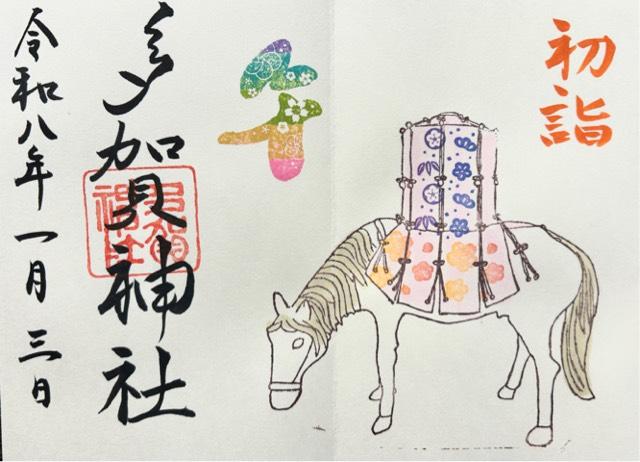 初詣
午
多賀神社
多賀神社
令和八年一月三日